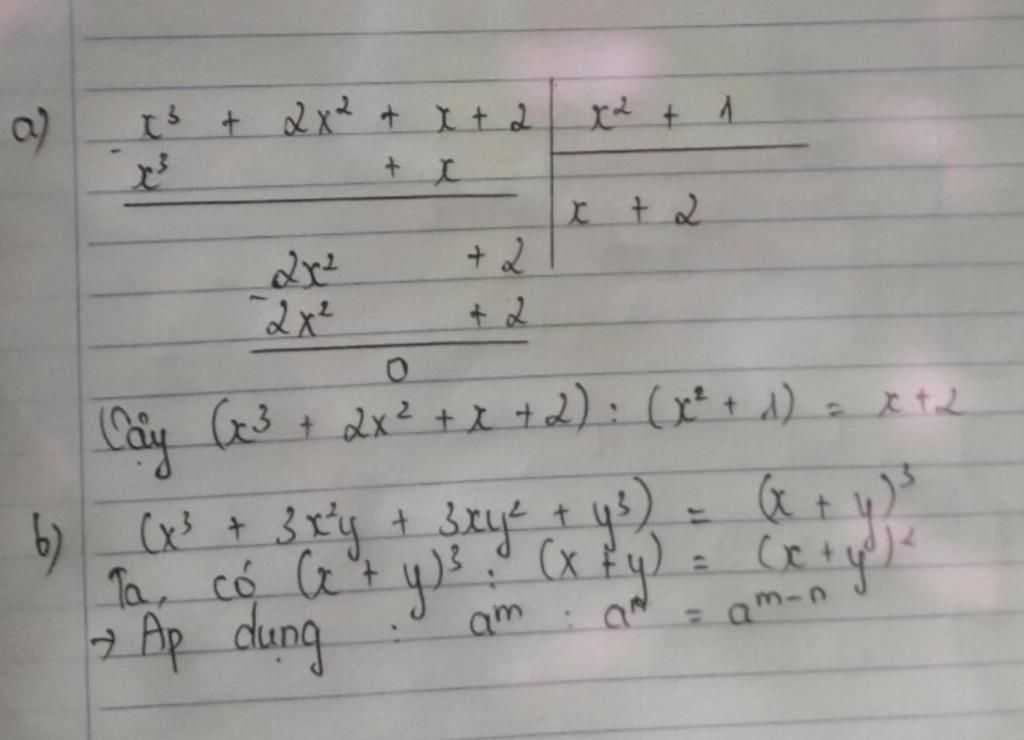 a) x³ + 2x² + x + 2 | x² + 1
- x³ + x
x + 2
2x² + 2
- 2x² + 2
0
Vậy (x³ + 2x² + x + 2) : (x² + 1) = x + 2
b) (x³ + 3x²y + 3xy² + y³) = (x + y)³
Ta có (x + y)³ : (x + y) = (x + y)²
→ Áp dụng : aᵐ : aⁿ = aᵐ⁻ⁿ